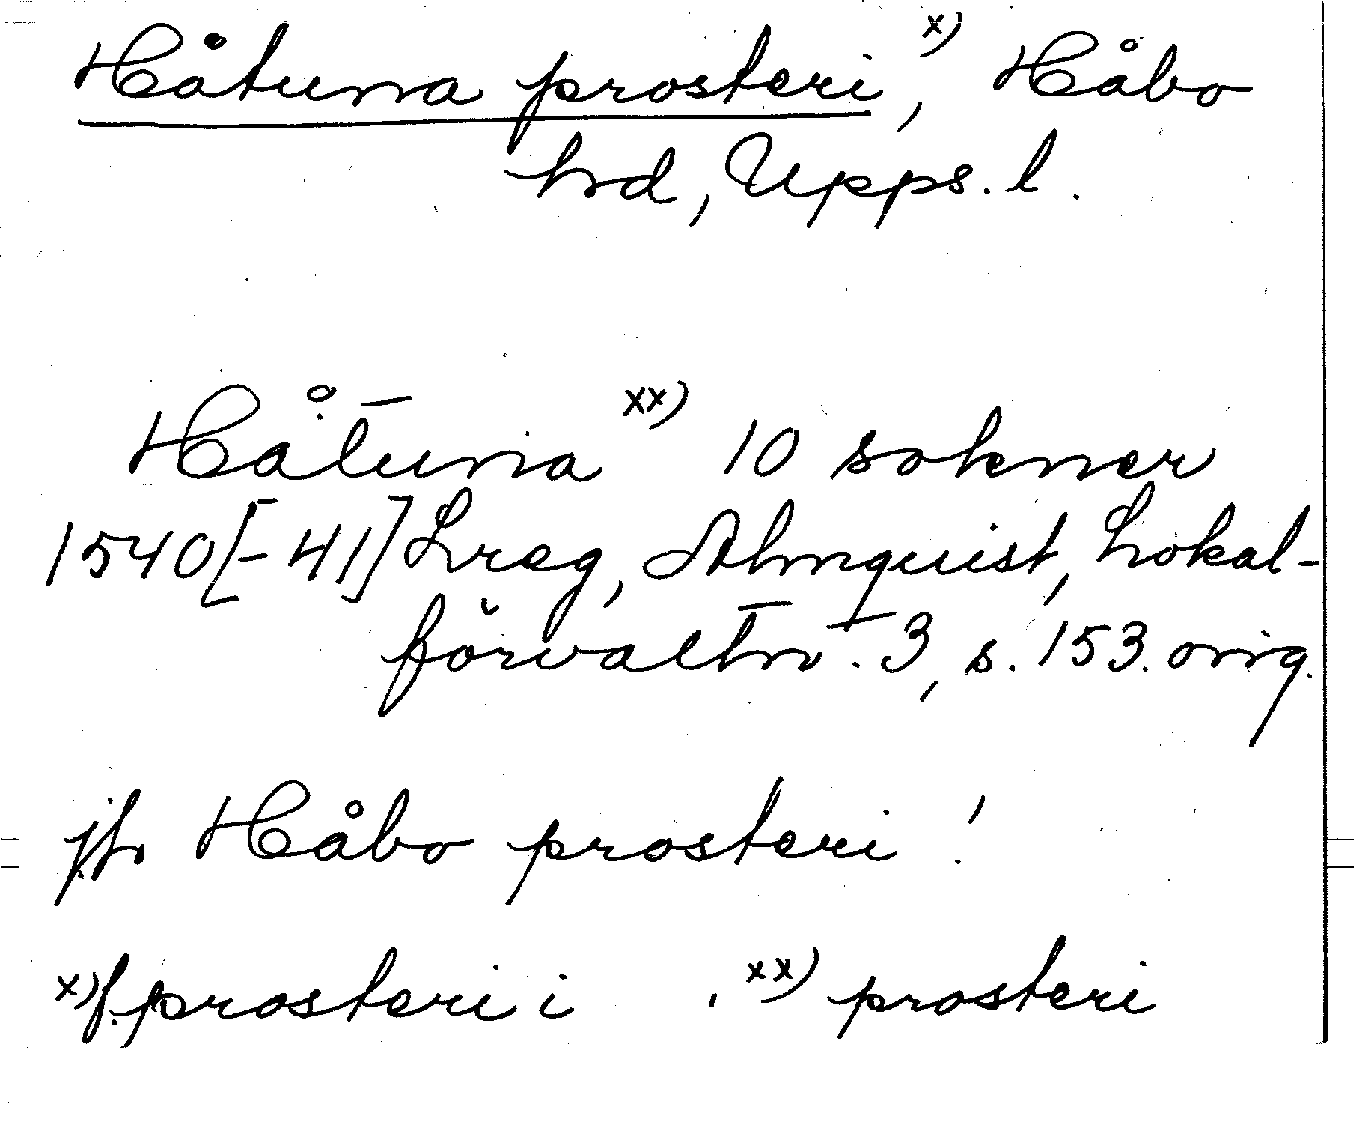 Håtuna prosteri x), Håbo
hd, Upps. l.
Håtuna xx) 10 sokner
1540[-41] Lreg, Almquist, Lokal-
förvaltn. 3, s. 153. orig.
jfr Håbo prosteri!
x) f. prosteri i xx) prosteri